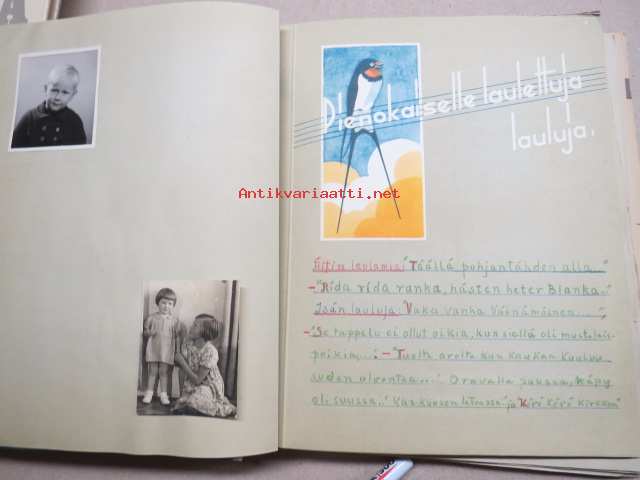 Pienokaiselle laulettuja
lauluja.
Antikvariaatti.net
Äitin laulamia: "Täällä pohjantähden alla."
— "Rida rida ranka, hästen heter Blanka."
Isän lauluja: "Vaka vanha Väinämöinen...",
— "Se tappelu ei ollut oikia, kun siellä oli mustalais-
poikia,...: — "Tuolta aroilta kun kaukaa kuuluu
suden ulvontaa..." Oravalla pukssa, käpy
oli suussa.." ja Köpö köpö